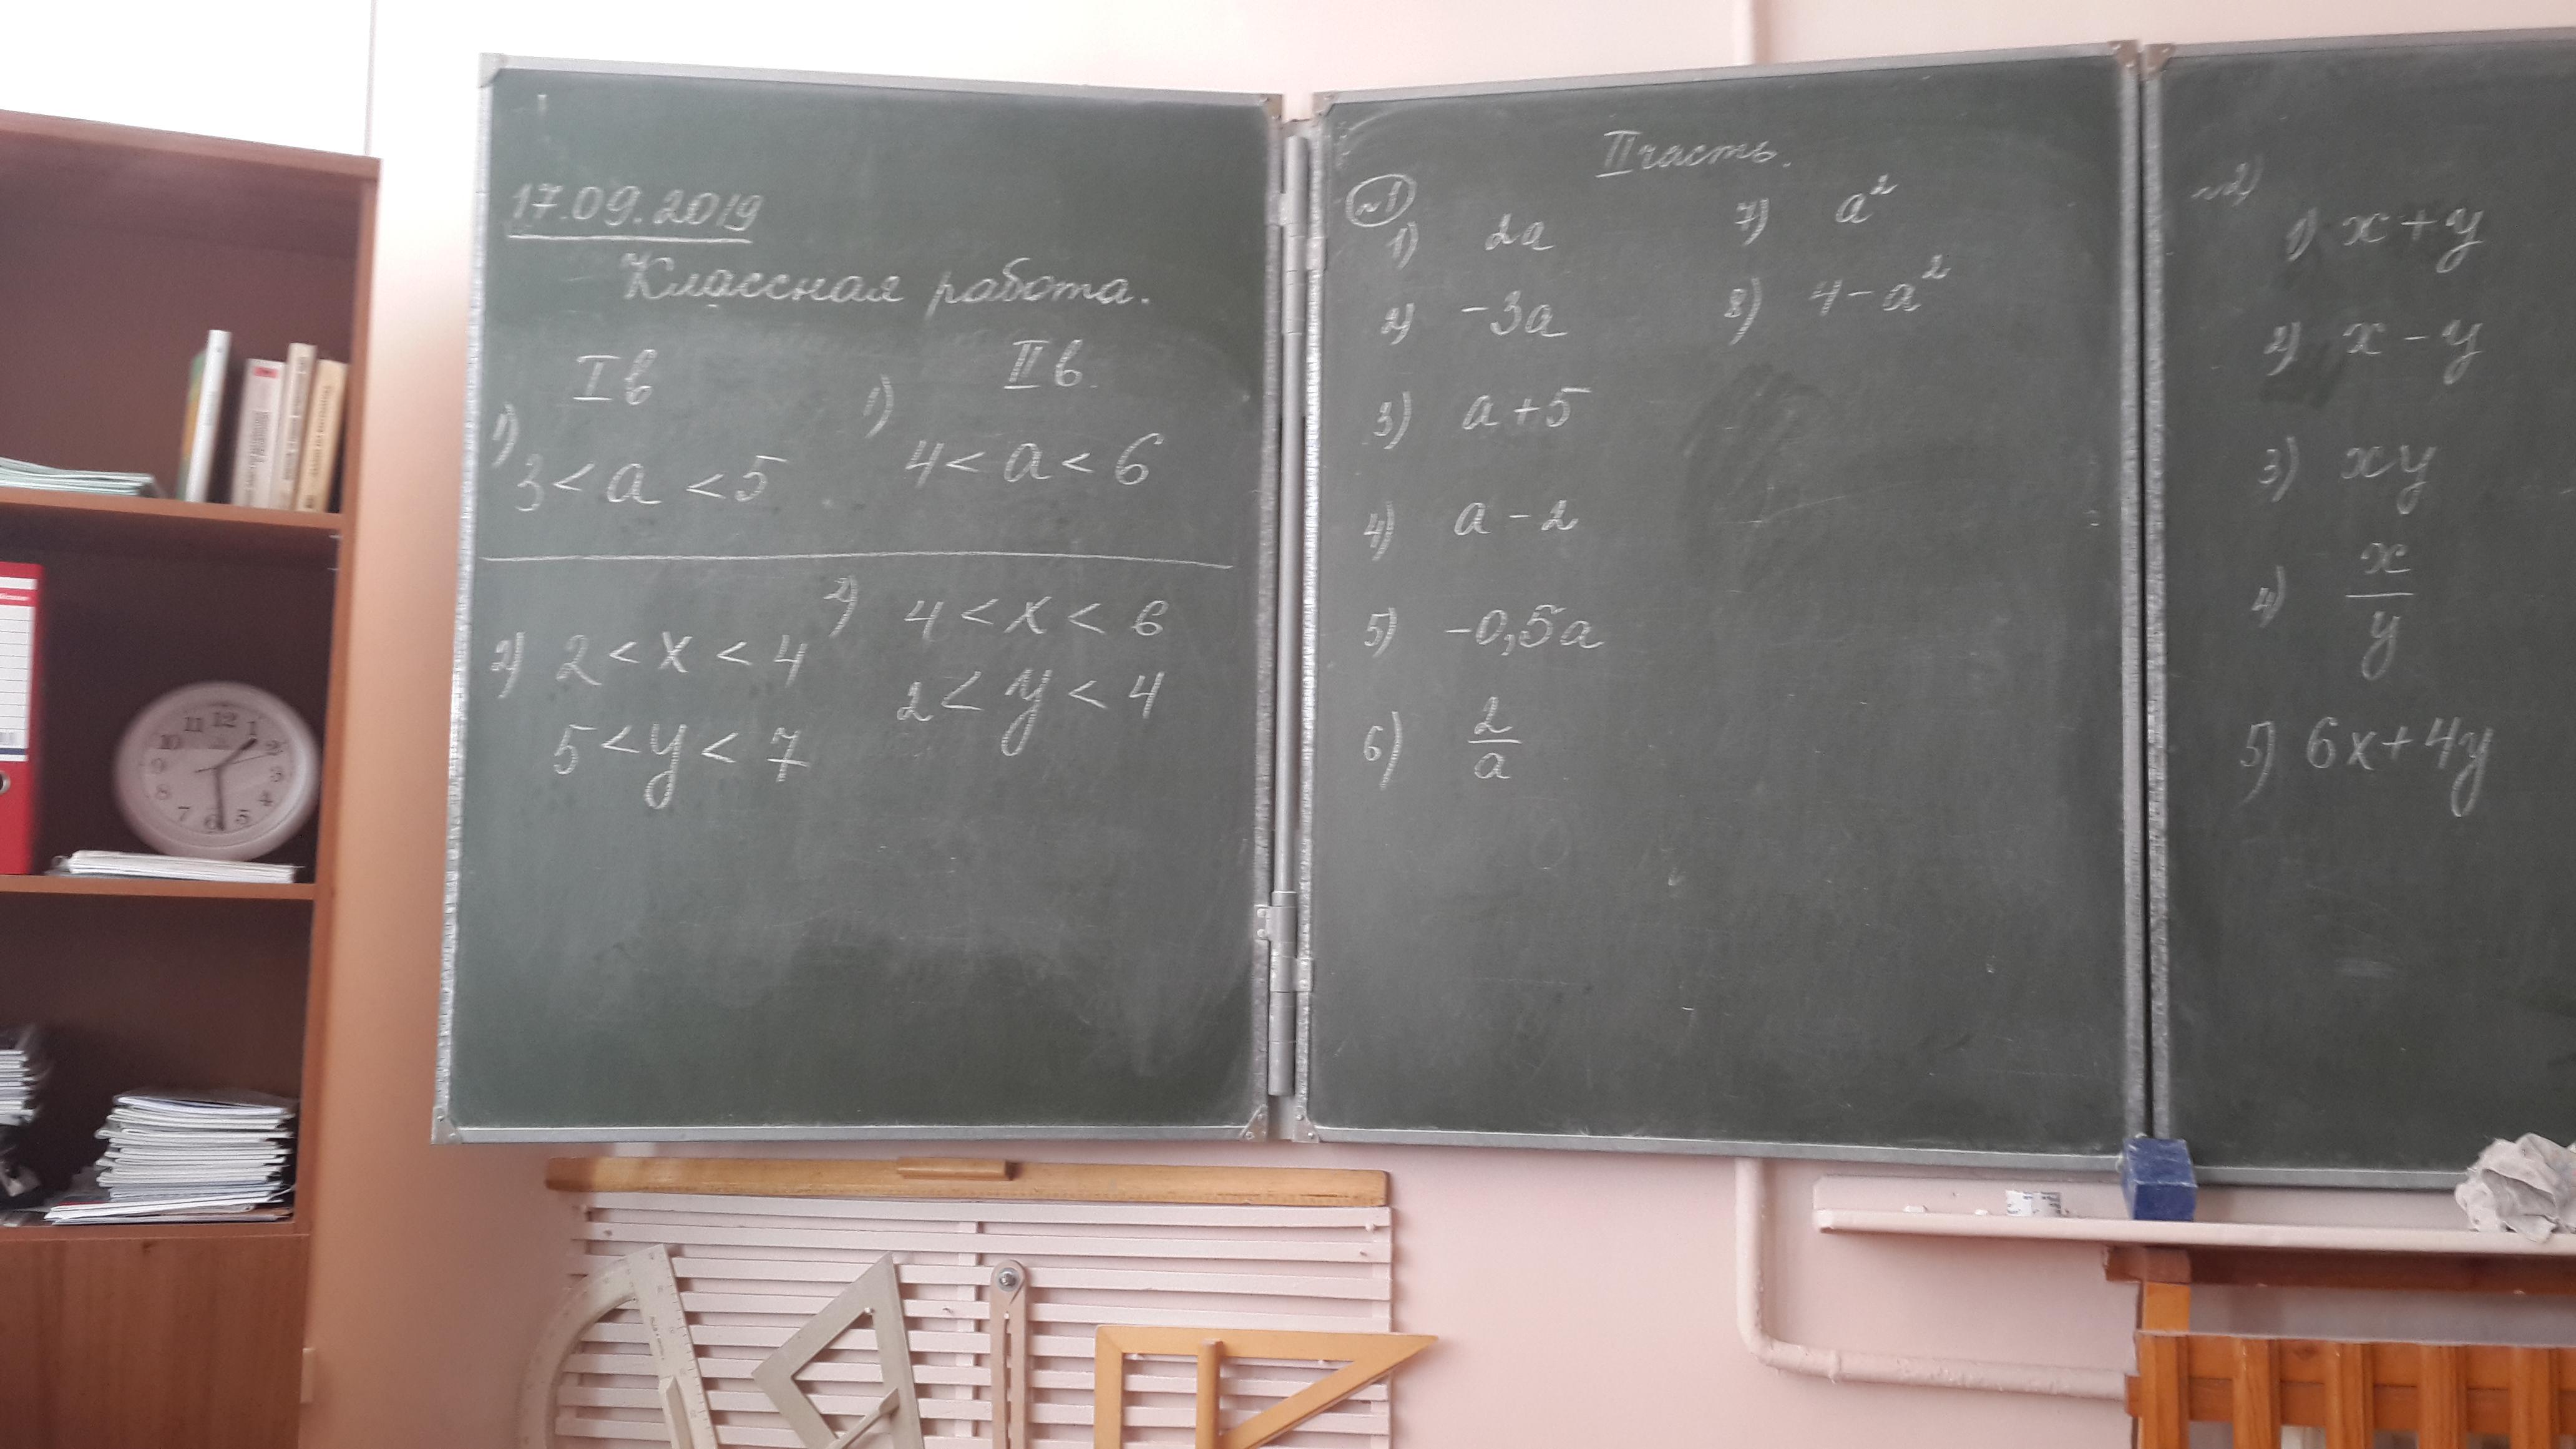 17.09.2019
Классная работа.
I в
1)
3 < a < 5
2) 2 < x < 4
5 < y < 7
II в.
1)
4 < a < 6
2) 4 < x < 6
2 < y < 4
II часть.
№1
1) 2a
2) -3a
3) a + 5
4) a - 2
5) -0,5a
6) 2/a
7) a²
8) 4 - a²
№2
1) x + y
2) x - y
3) xy
4) x/y
5) 6x + 4y
11 12 1
10 2
9 3
8 4
7 6 5